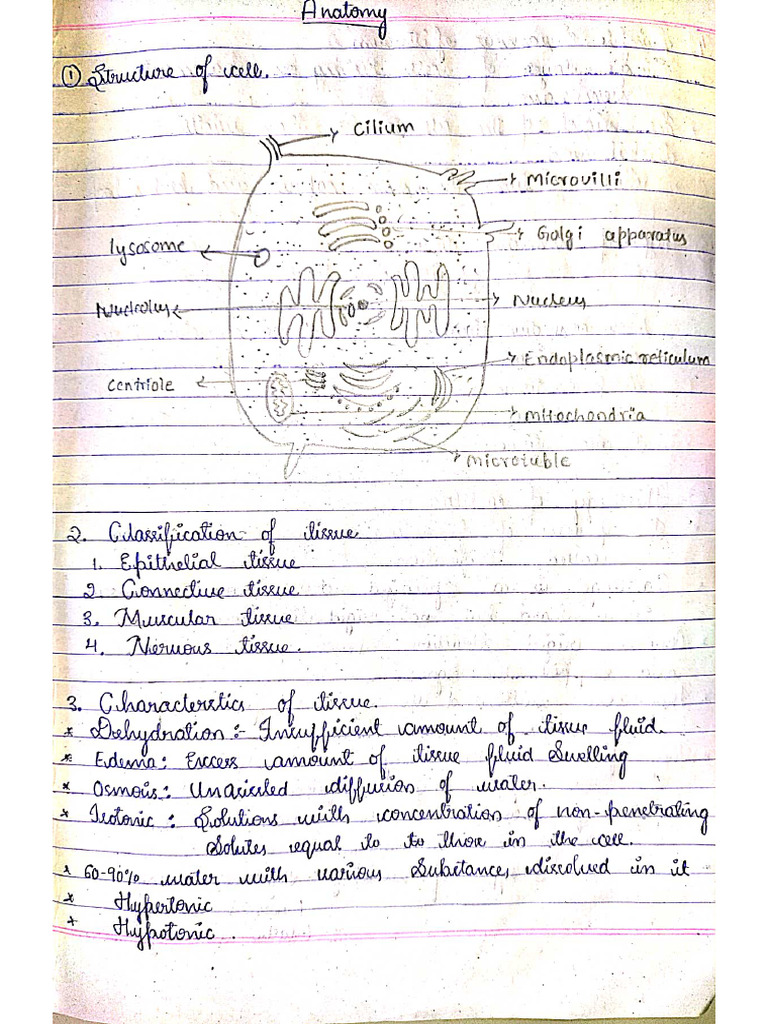 Anatomy
① Structure of cell.
Cilium
Microvilli
Golgi apparatus
lysosome
Nucleus
Nucleolus
Endoplasmic reticulum
Centriole
Mitochondria
Microtuble
2. Classification of tissue
1. Epithelial tissue
2. Connective tissue
3. Muscular tissue
4. Nervous tissue.
3. Characterstics of tissue.
* Dehydration :- Insufficient amount of tissue fluid.
* Edema : Excess amount of tissue fluid Swelling
* Osmosis : Unaissled diffusion of water.
* Isotonic : Solutions with concentration of non-penetrating
Solutes equal to to those in the cell.
* 60-90% water with various Substances dissolved in it
* Hypertonic
* Hypotonic .